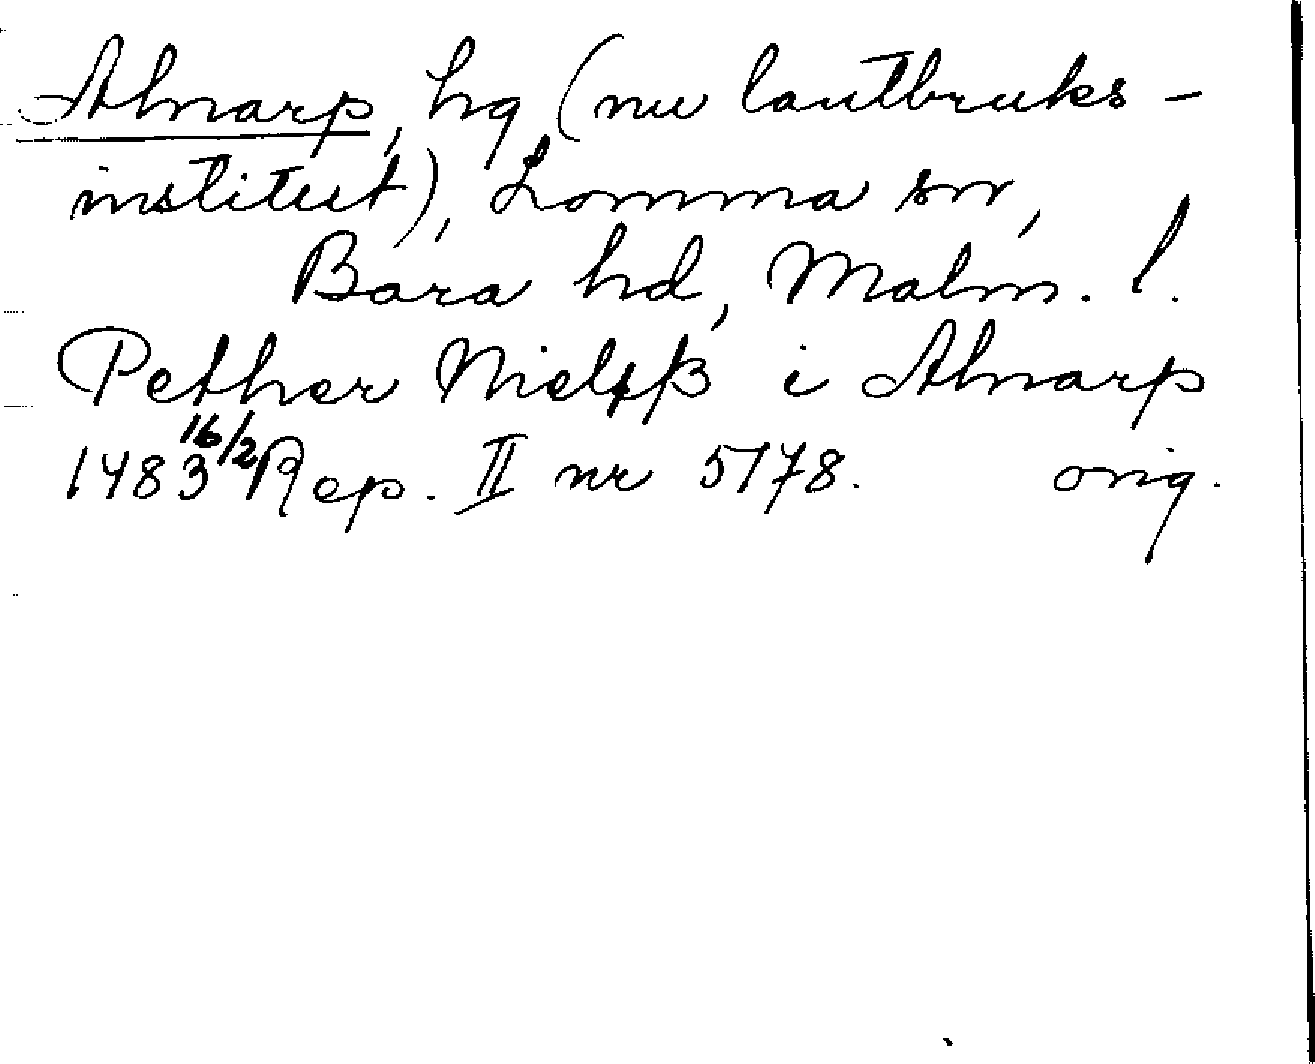 Alnarp, hg (nu lantbruks-
institut), Lomma sn,
Bara hd, Malm. l.
Pether Nielsß i Alnarp
1483 16/2 Rep. II nr 5178. orig.